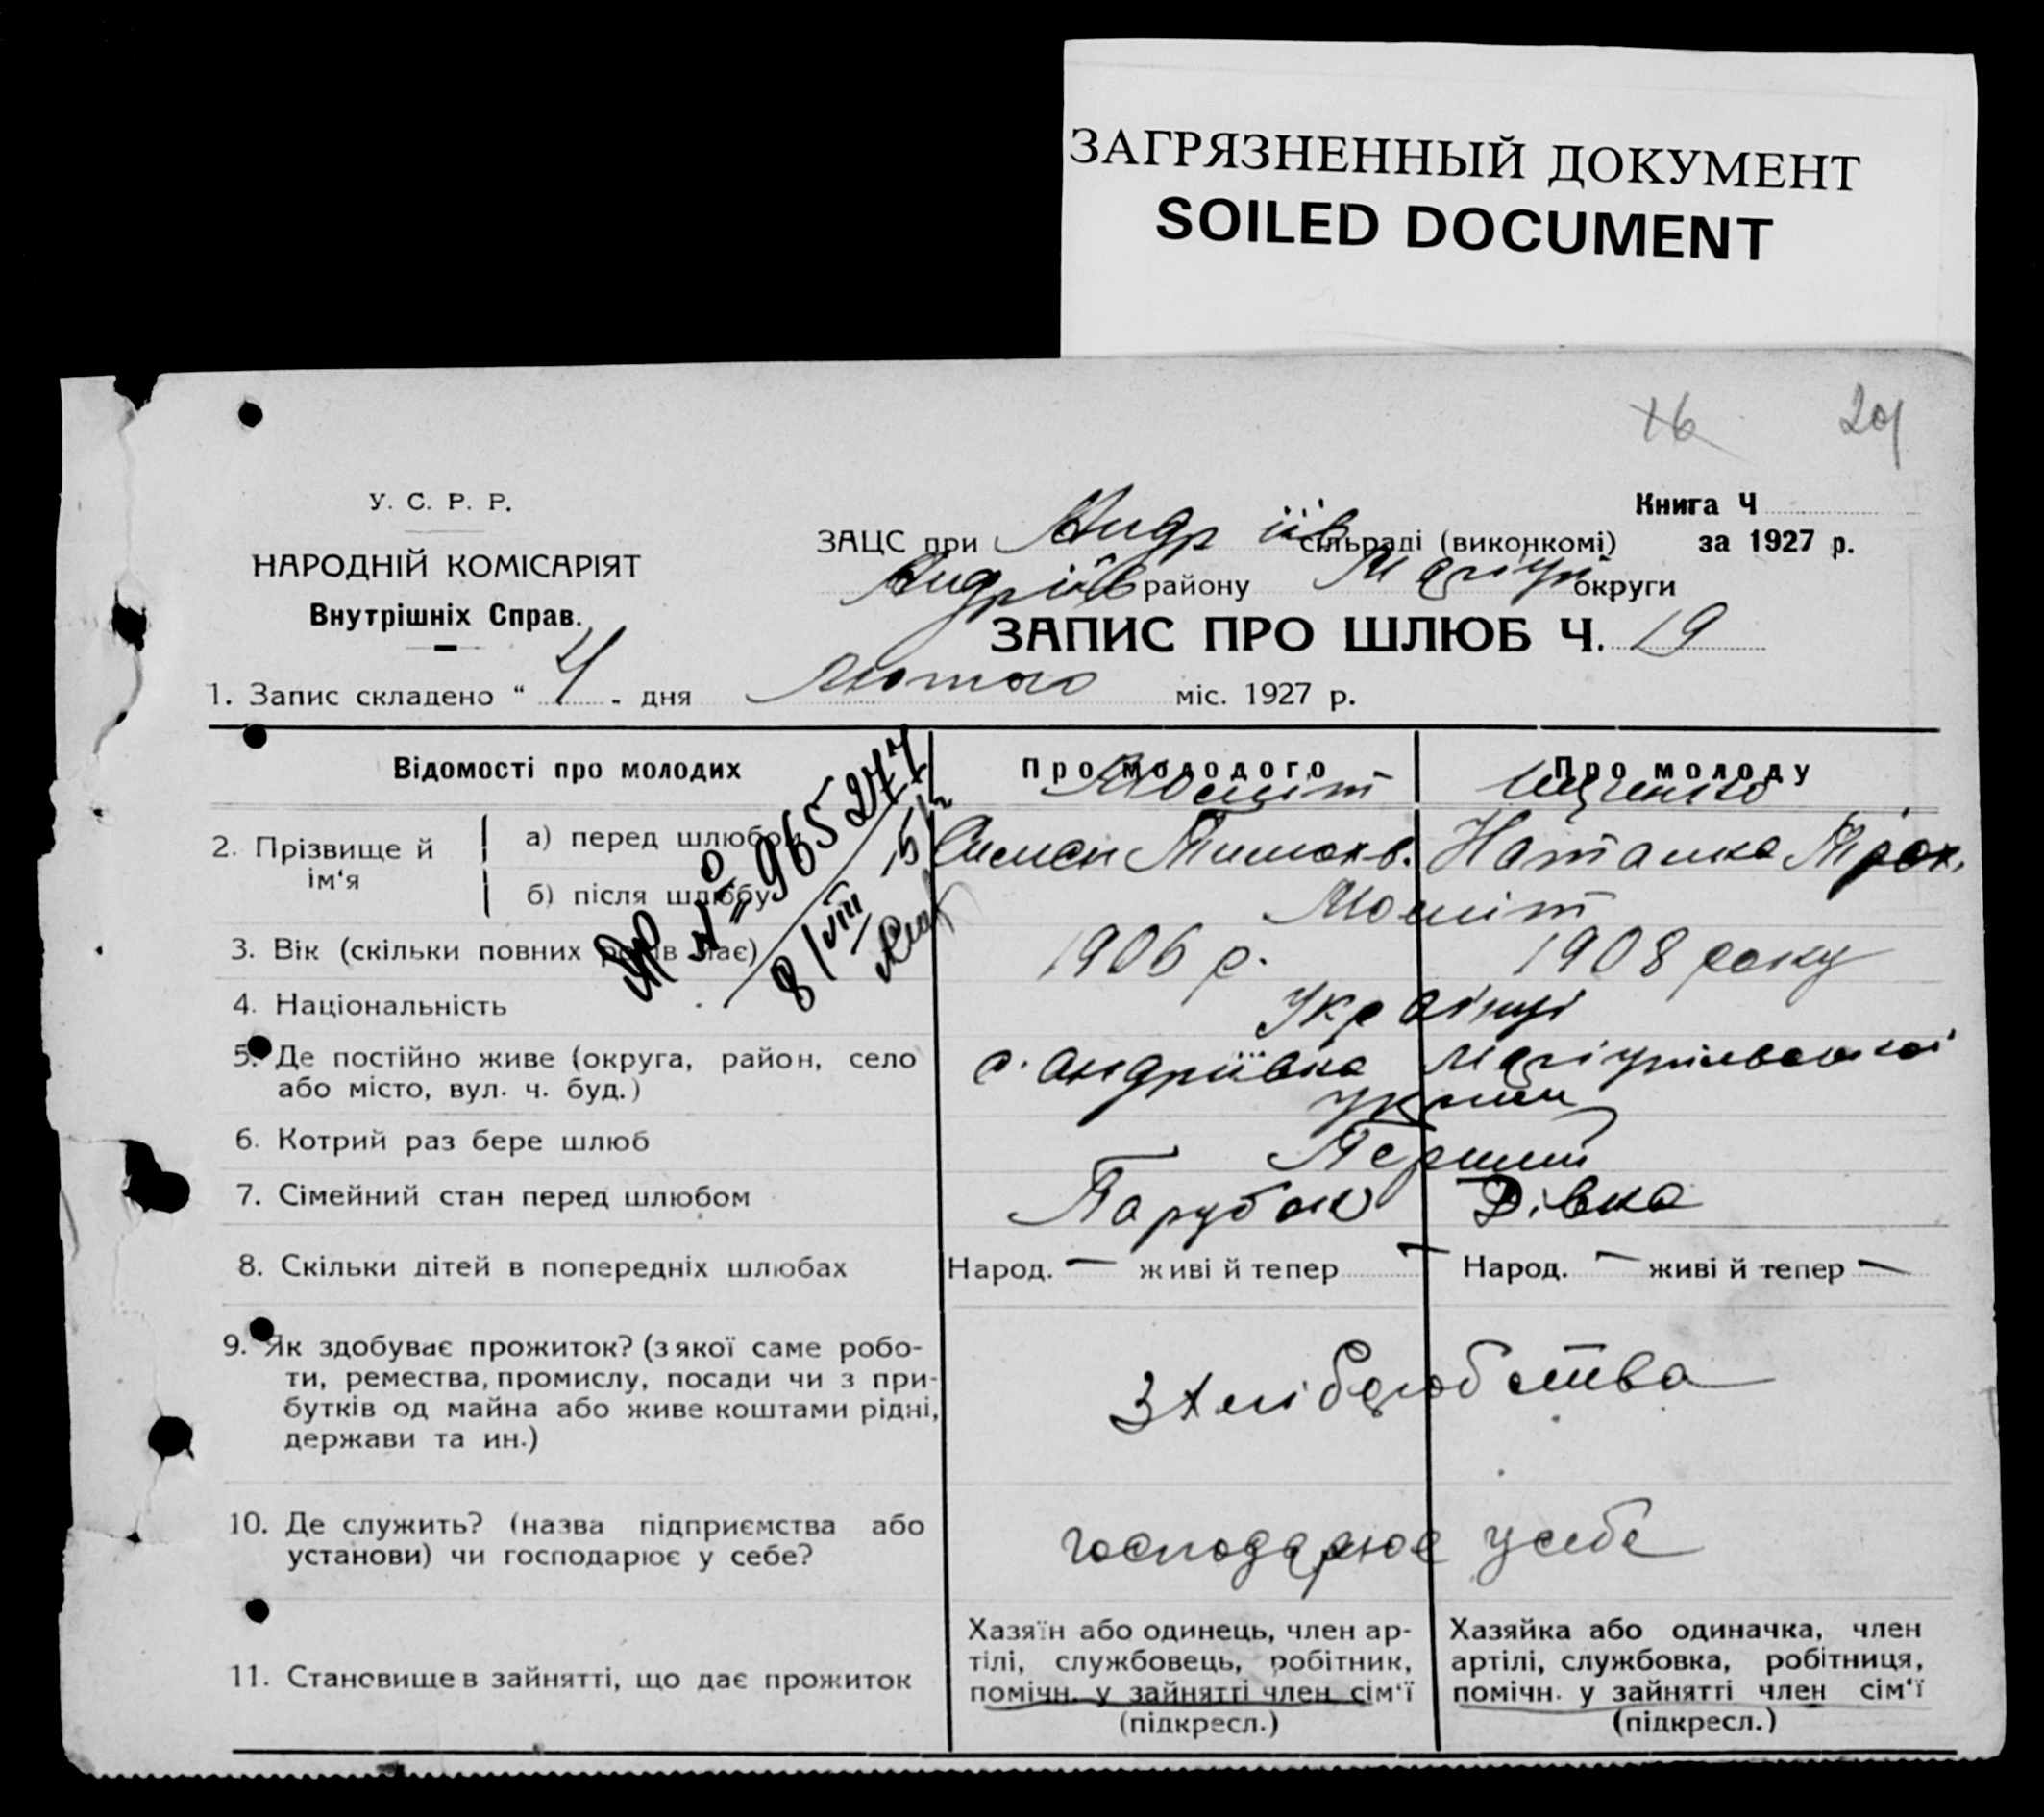 ЗАГРЯЗНЕННЫЙ ДОКУМЕНТ
SOILED DOCUMENT
16 20
У. С. Р. Р.
НАРОДНІЙ КОМІСАРІЯТ
Внутрішніх Справ.
Книга Ч
за 1927 р.
ЗАЦС при Андріїв сільраді (виконкомі)
Андріїв району Маріуп округи
ЗАПИС ПРО ШЛЮБ Ч. 19
1. Запис складено “ 4 - дня Лютого міс. 1927 р.
Відомості про молодих
Про молодого
Про молоду
№ 965277
8/VIII 5
2. Прізвище й ім‘я
а) перед шлюбом
Семен Тимохв. Наталка Трох.
б) після шлюбу
3. Вік (скільки повних років має) 1906 р. 1908 року
4. Національність Українці
5. Де постійно живе (округа, район, село
або місто, вул. ч. буд.)
с. Андріївка Маріупільської
6. Котрий раз бере шлюб Перший
7. Сімейний стан перед шлюбом Парубок Дівка
8. Скільки дітей в попередніх шлюбах Народ. — живі й тепер — Народ. — живі й тепер —
9. Як здобуває прожиток? (з якої саме робо-
ти, ремества, промислу, посади чи з при-
бутків од майна або живе коштами рідні,
держави та ин.)
З хлібробства
10. Де служить? (назва підприємства або
установи) чи господарює у себе?
господарює у себе
11. Становище в зайнятті, що дає прожиток
Хазяїн або одинець, член ар-
тілі, службовець, робітник,
помічн. у зайнятті член сім‘ї
(підкресл.)
Хазяйка або одиначка, член
артілі, службовка, робітниця,
помічн. у зайнятті член сім‘ї
(підкресл.)